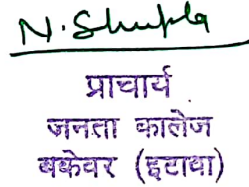 N. Shukla
प्राचार्य
जनता कालेज
बकेवर (इटावा)